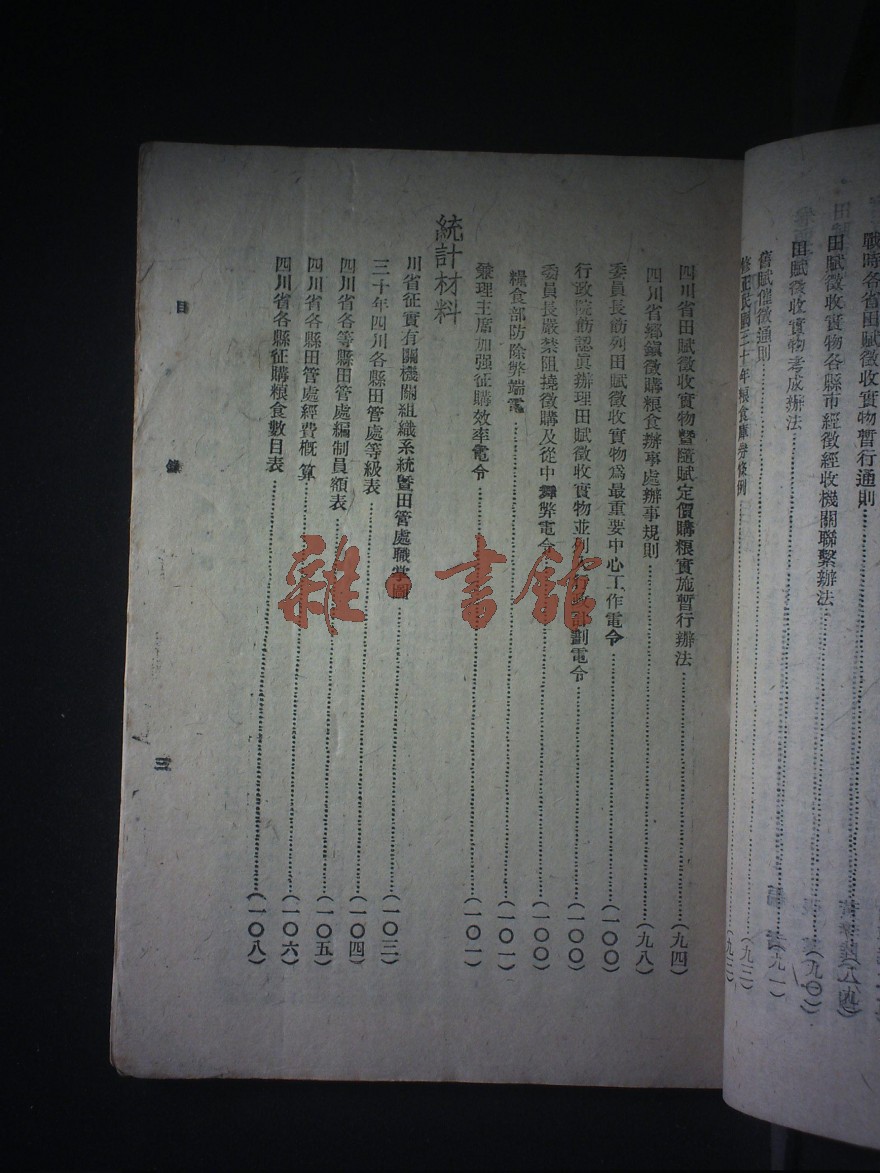 戰時各省田賦徵收實物暫行通則
田賦徵收實物各縣市經徵經收機關聯繫辦法……(八九)
田賦徵收實物考成辦法……(九〇)
舊賦催徵通則……(九一)
修正民國三十年粮食庫券條例……(九三)
四川省田賦徵收實物暨隨賦定價購粮實施暫行辦法……(九四)
四川省鄉鎮徵購粮食辦事處辦事規則……(九八)
委員長飭列田賦徵收實物爲最重要中心工作電令……(一〇〇)
行政院飭認眞辦理田賦徵收實物並列入行政計劃電令……(一〇〇)
委員長嚴禁阻撓徵購及從中舞弊電令……(一〇〇)
糧食部防除弊端電……(一〇一)
兼理主席加强征購效率電令……(一〇一)
統計材料
川省征實有關機關組織系統暨田管處職掌圖……(一〇三)
三十年四川各縣田管處等級表……(一〇四)
四川省各等縣田管處編制員額表……(一〇五)
四川省各縣田管處經費概算……(一〇六)
四川省各縣征購粮食數目表……(一〇八)
目 錄
三
雜·書館